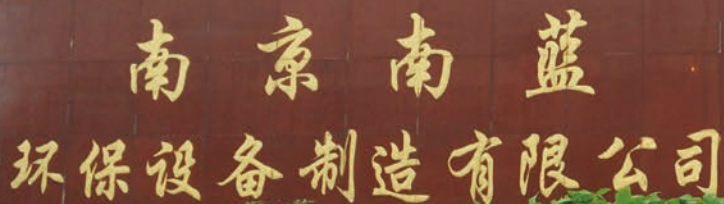 南京南蓝
环保设备制造有限公司